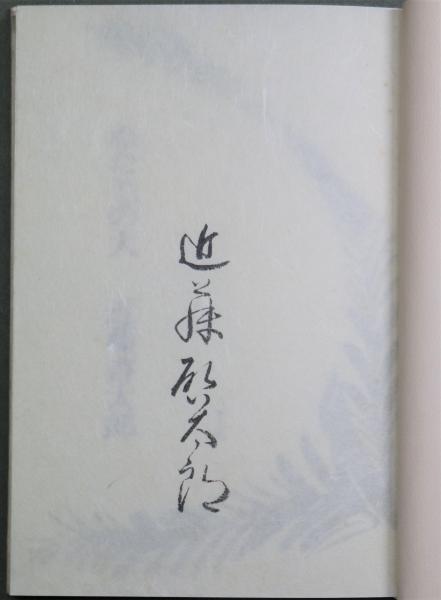 近藤啓太郎